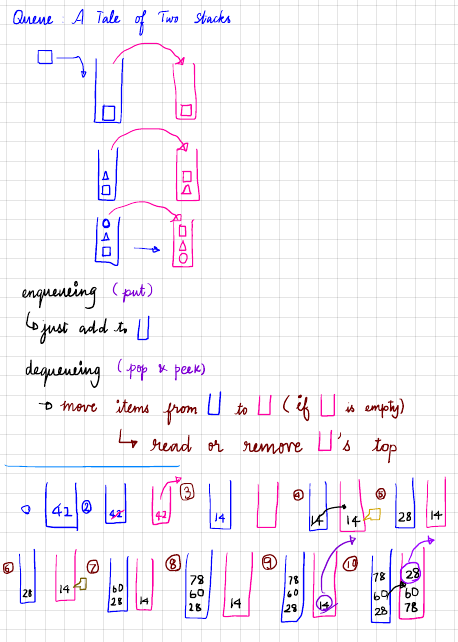 Queue : A Tale of Two stacks
enqueueing (put)
just add to
dequeueing (pop & peek)
move items from to (if is empty)
read or remove 's top
42 ② 42 42 ③ 14 ④ 14 14 ⑤ 28 14
⑥ 28 14 ⑦ 60 28 14 ⑧ 78 60 28 14 ⑨ 78 60 28 14 ⑩ 78 60 28 28 60 78